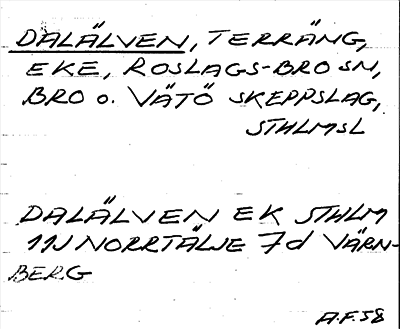 DALÄLVEN, TERRÄNG,
EKE, ROSLAGS-BRO SN,
BRO o. VÄTÖ SKEPPSLAG,
STHLMSL
DALÄLVEN EK STHLM
11N NORRTÄLJE 7d VÄRN-
BERG
A.F. 58